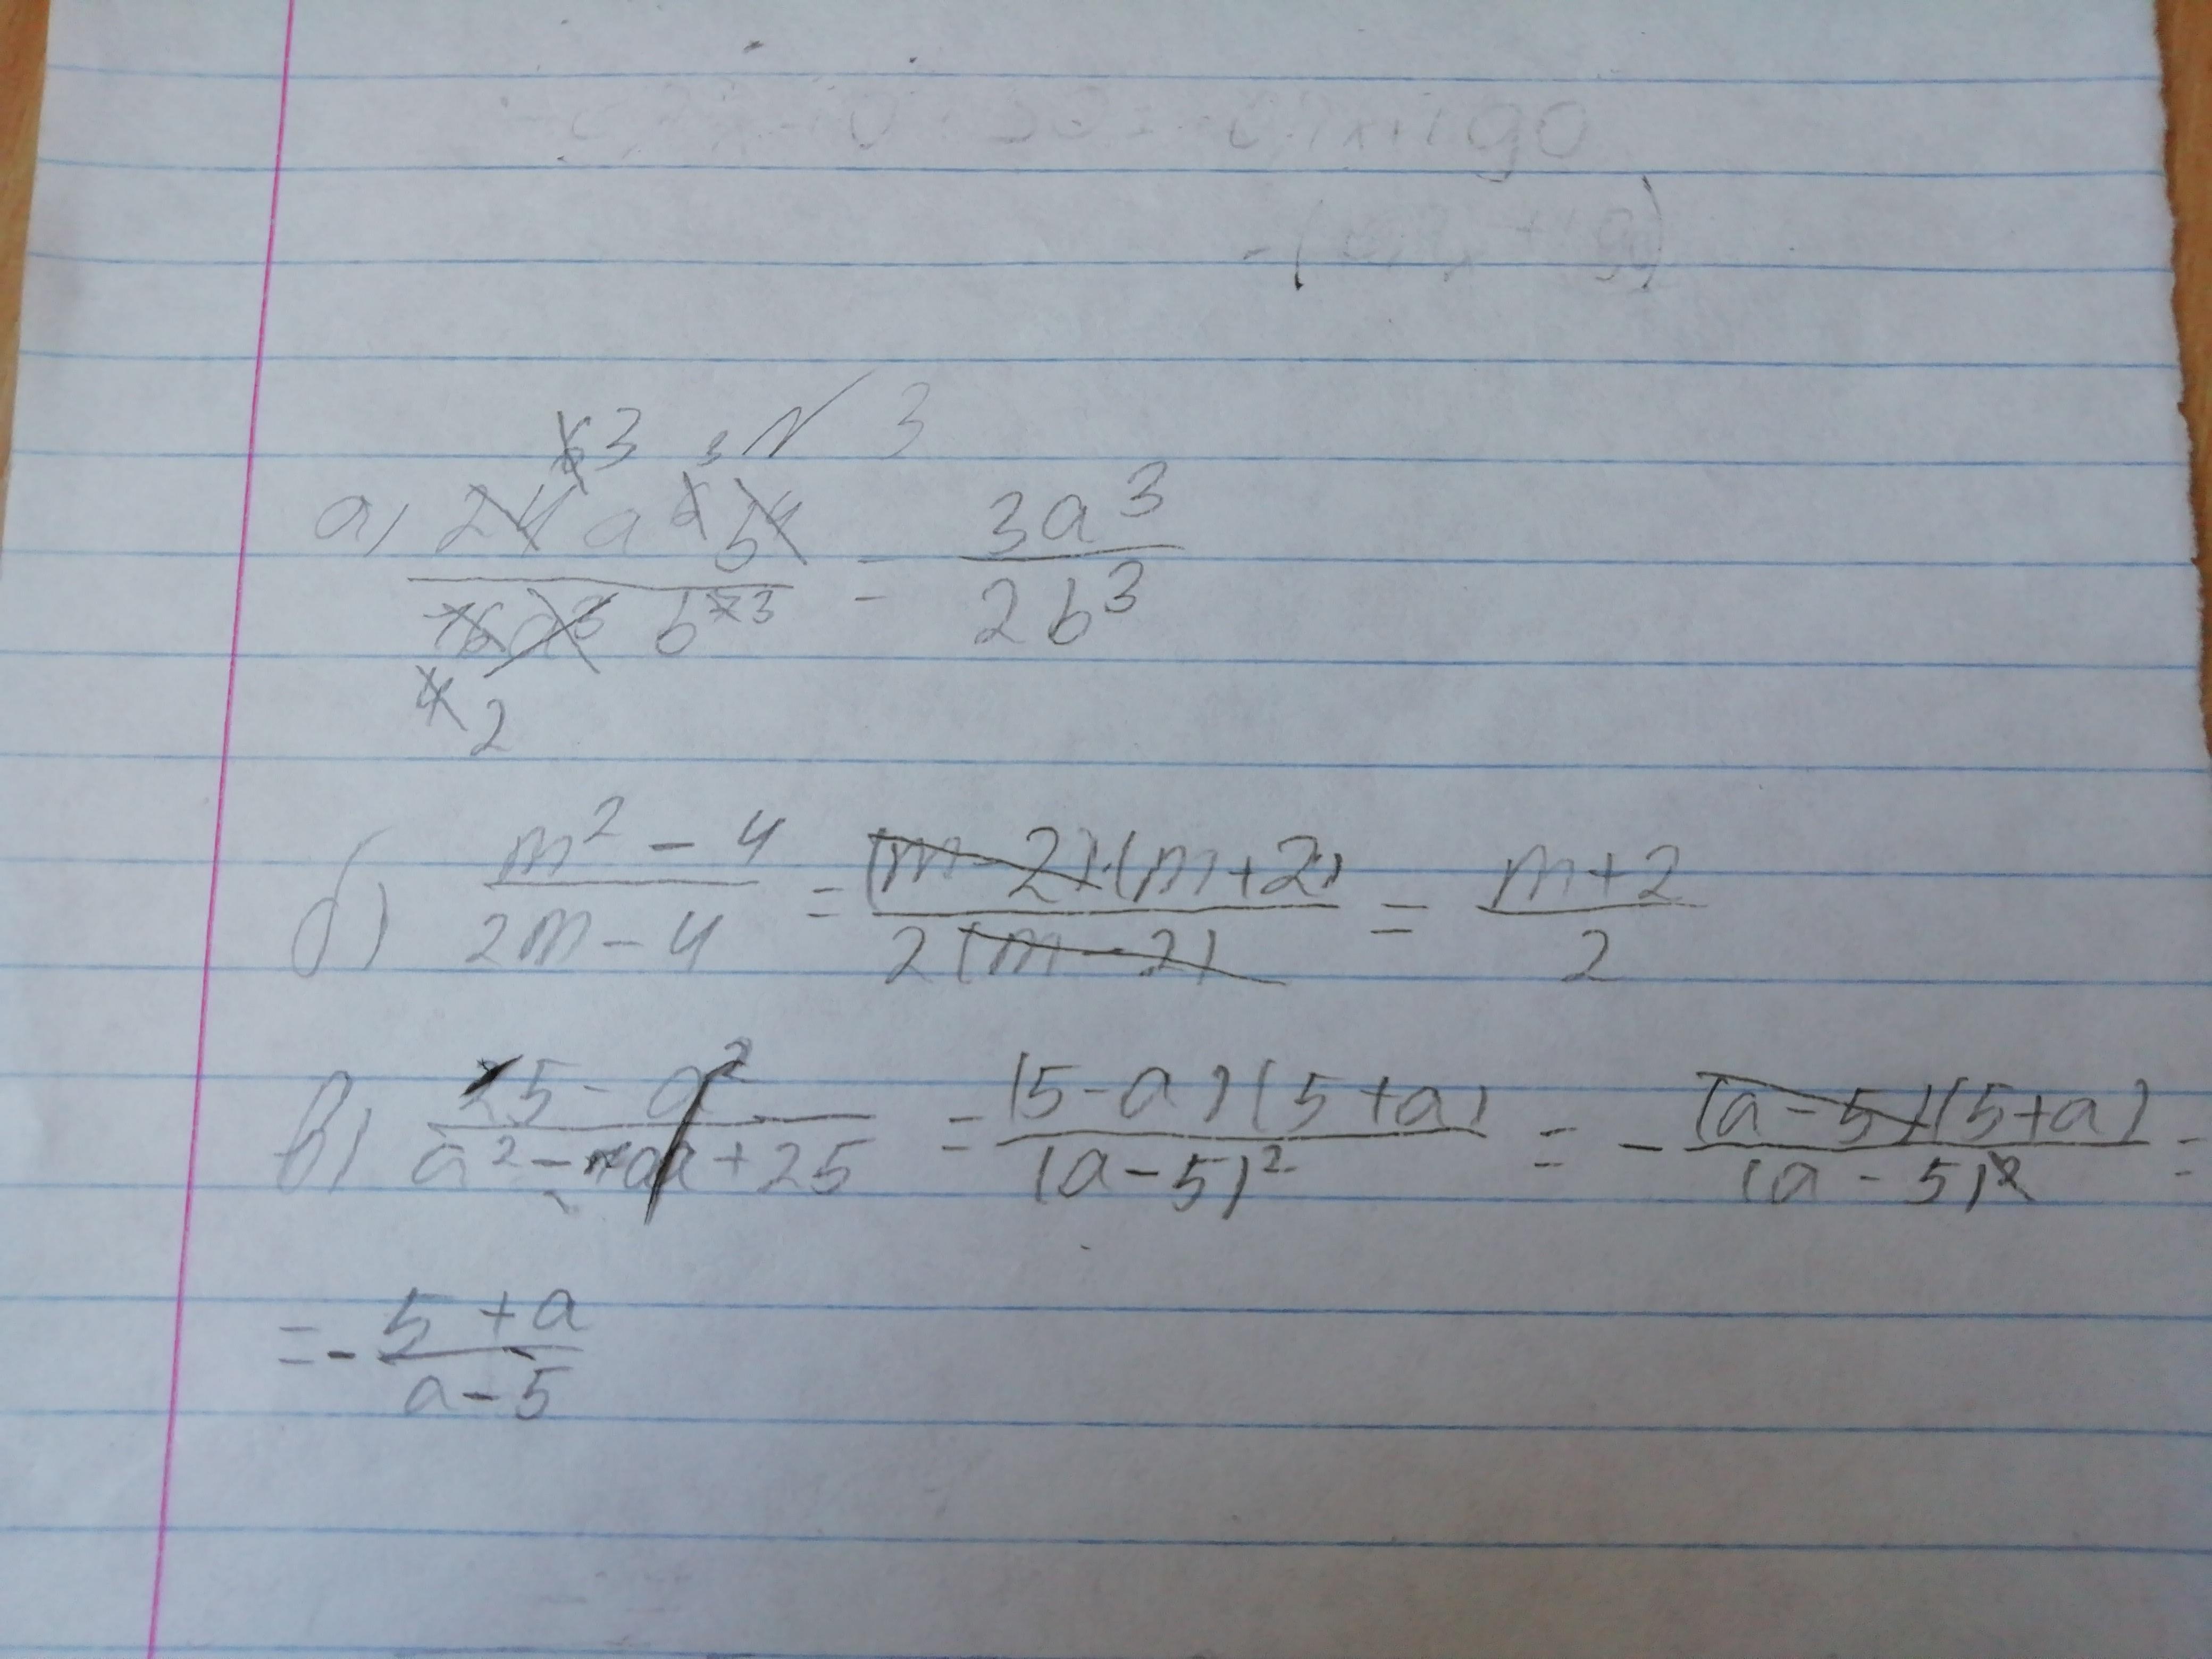 № 3
а) 24a⁶b⁴ / 16a³b⁷ = 3a³ / 2b³
б) m² - 4 / 2m - 4 = (m-2)·(m+2) / 2(m-2) = m+2 / 2
в) 25 - a² / a² - a + 25 = (5-a)(5+a) / (a-5)² = - (a-5)(5+a) / (a-5)² =
= - 5+a / a-5